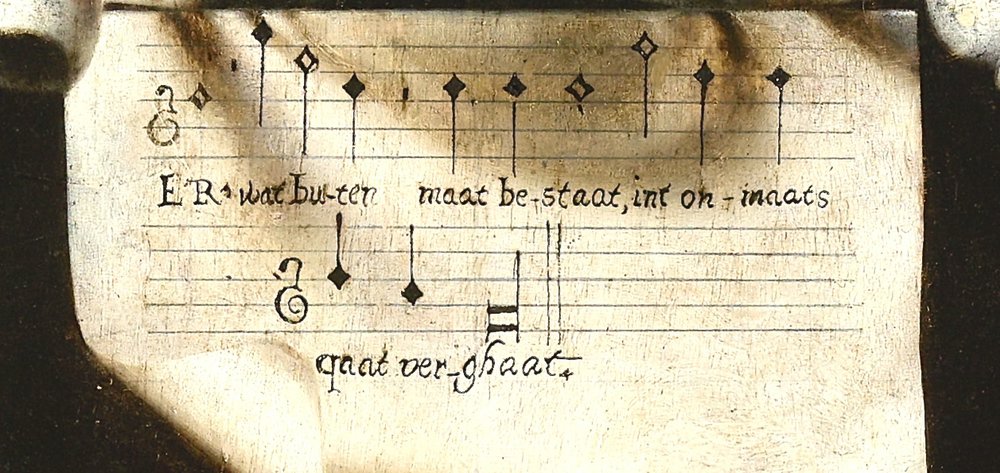 ER· wat bu-ten maat be-staat, int on-maats
qaat ver-ghaat.